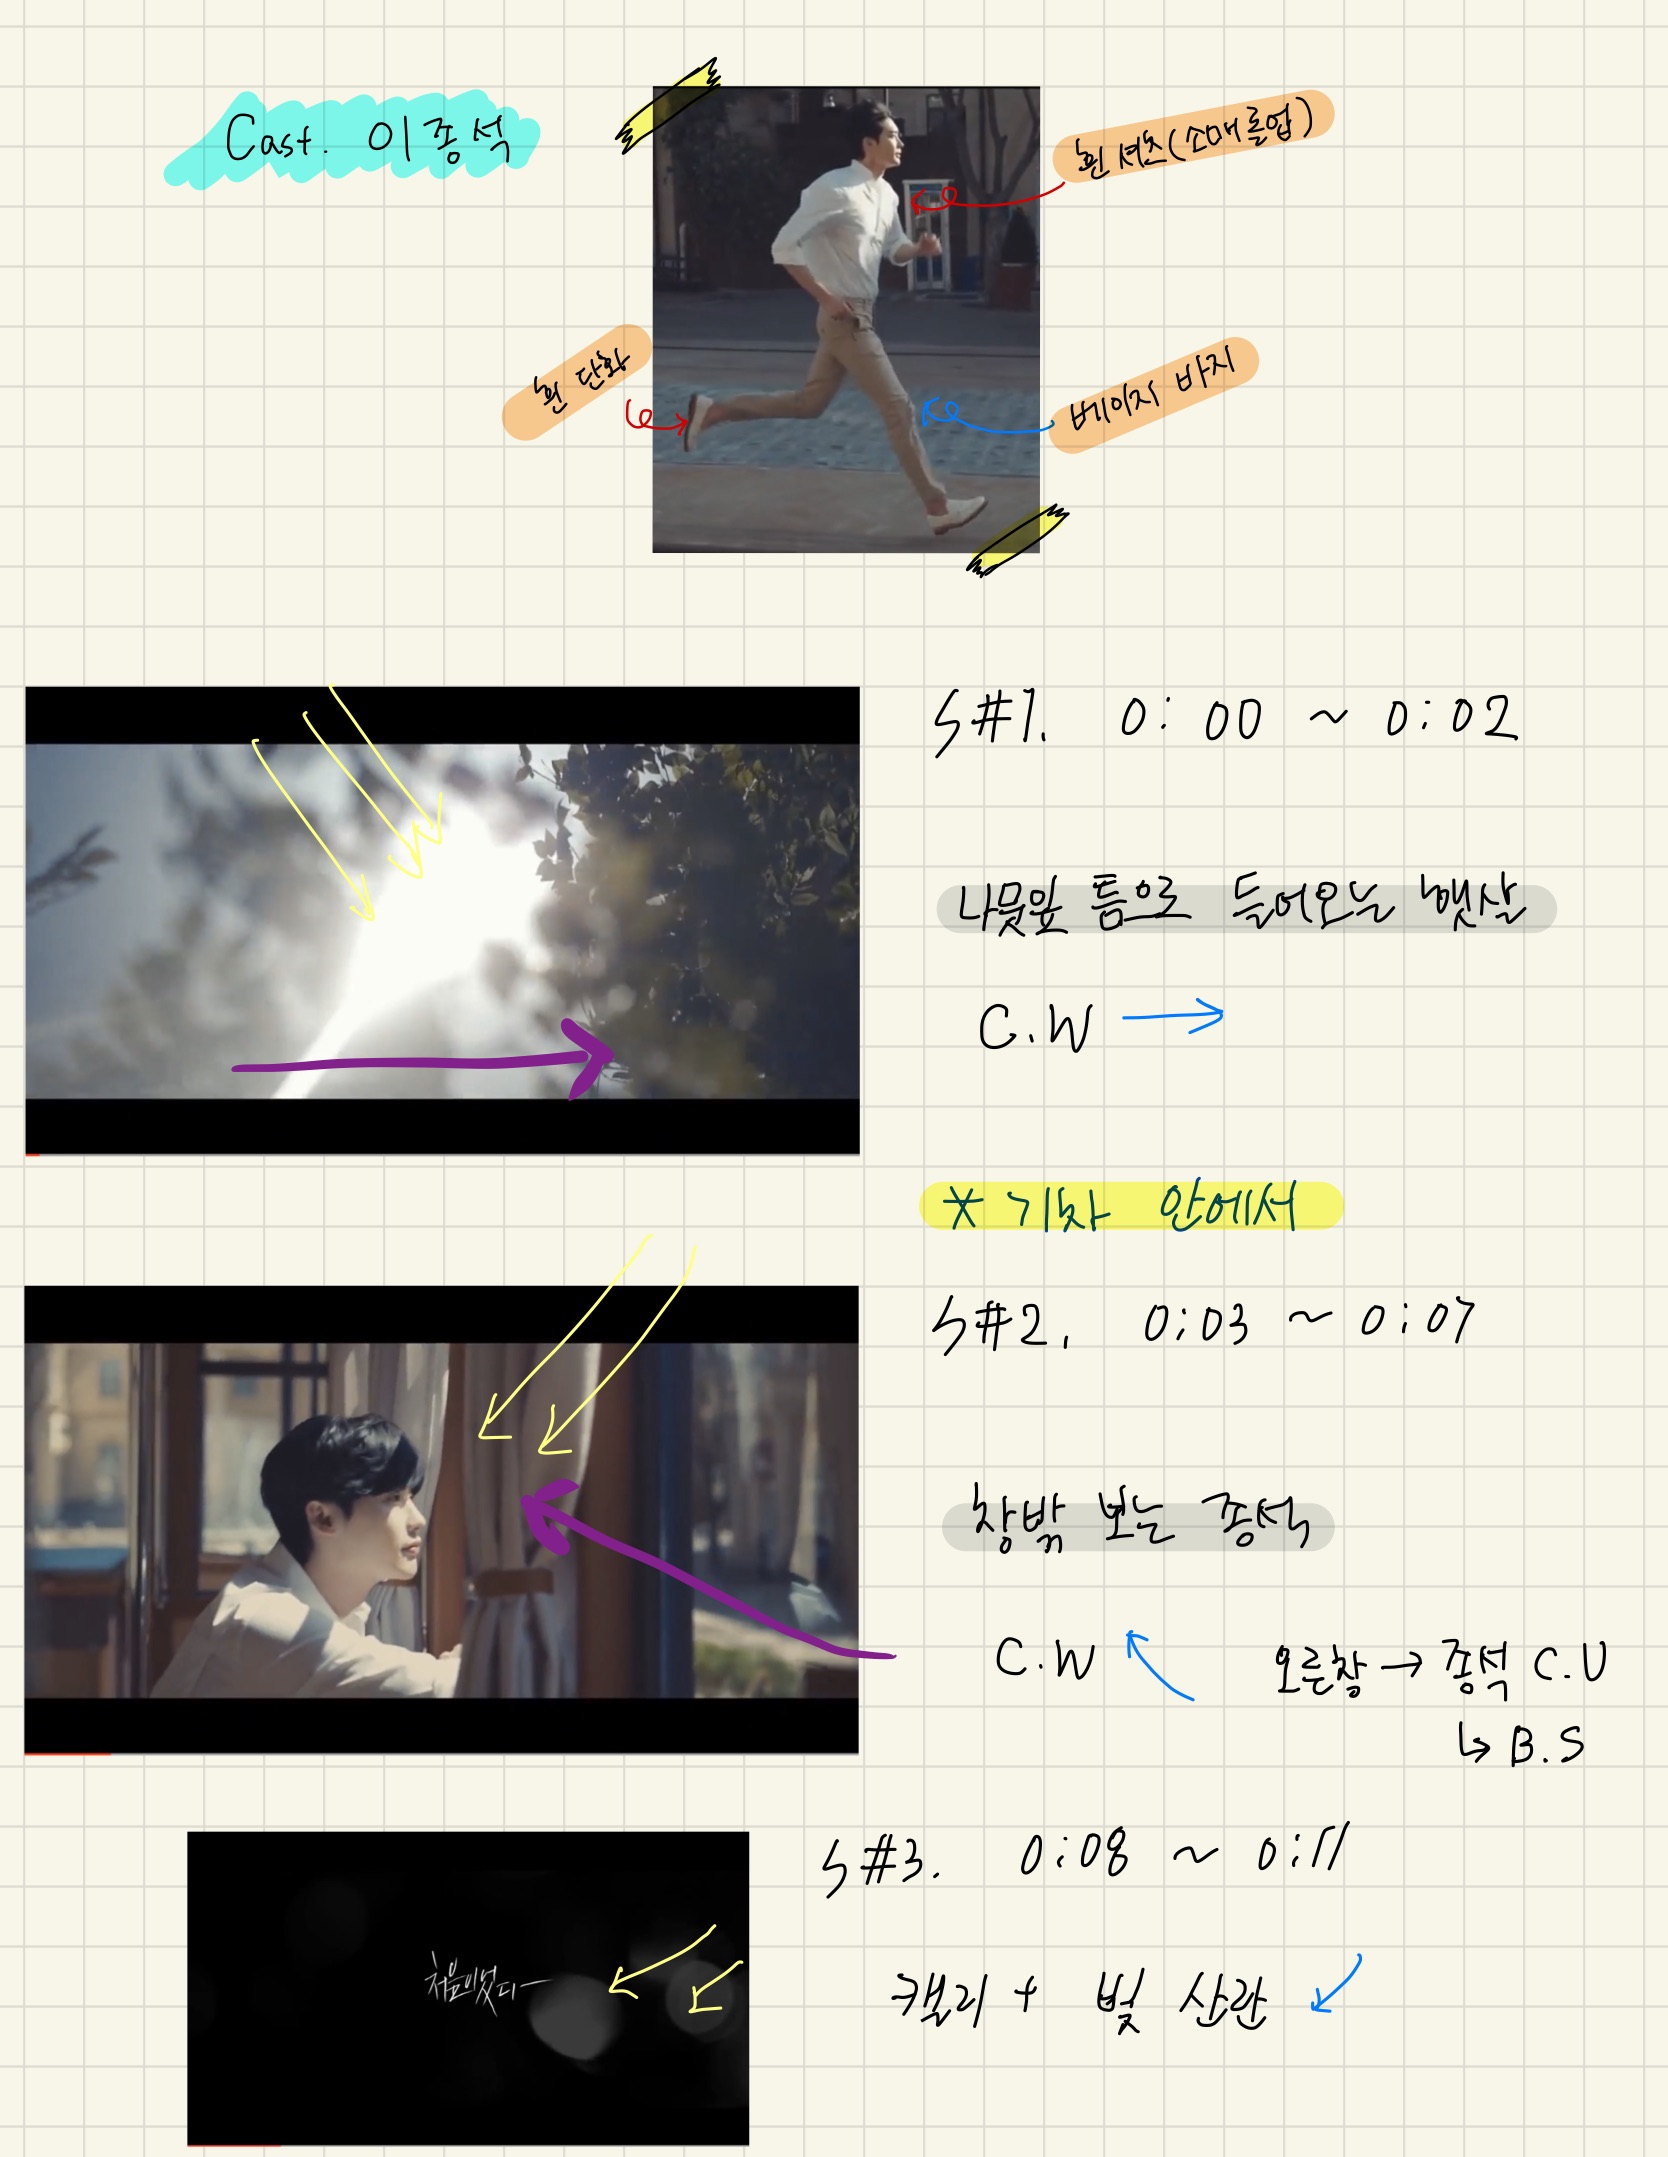 Cast. 이종석
흰 셔츠(소매롤업)
흰 단화
베이지 바지
S#1. 0:00 ~ 0:02
나뭇잎 틈으로 들어오는 햇살
C.W →
* 기차 안에서
S#2. 0:03 ~ 0:07
창밖 보는 종석
C.W ↖ 오른창 → 종석 C.U
↳ B.S
S#3. 0:08 ~ 0:11
처음이었다
캘리 + 빛 산란 ↙